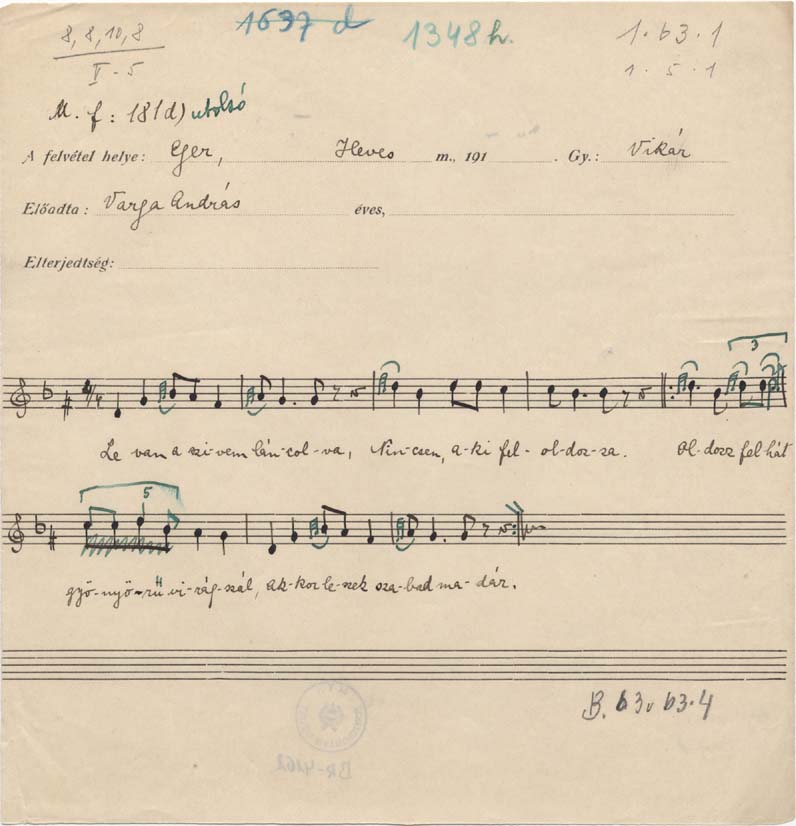 8, 8, 10, 8
V - 5
1637 d
1348 h.
1. b3. 1
1. 5. 1
M. f: 18(d) utolsó
A felvétel helye: Eger, Heves m., 191 . Gy.: Vikár
Előadta: Varga András éves,
Elterjedtség:
3
Le van a szi-vem lán-col-va, Nin-csen, a-ki fel-ol-doz-za. Ol-dozz fel hát
5
gyö-nyö-rű vi-rág-szál, ak-kor le-szek sza-bad ma-dár.
B. b3 b3.4
BR-4162